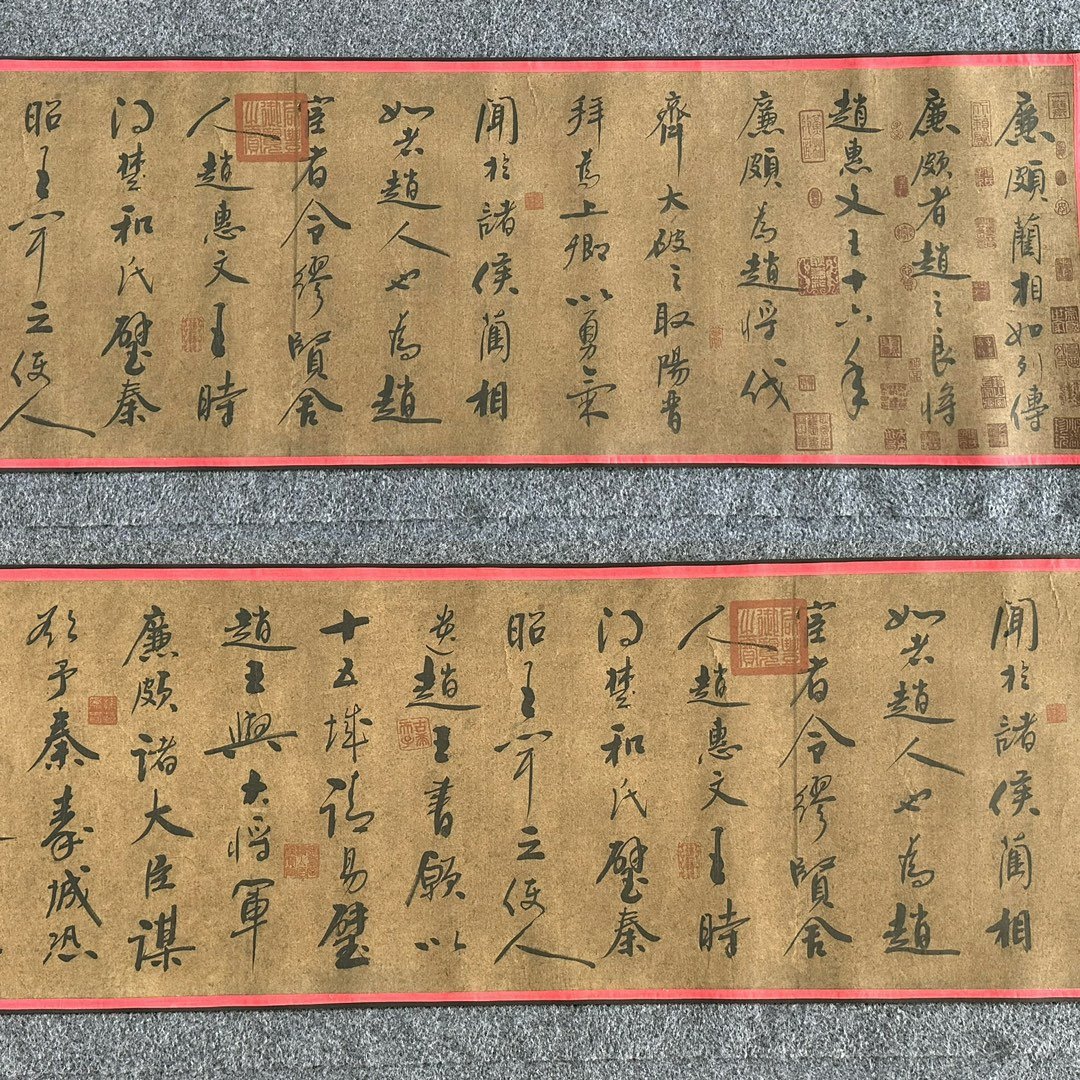 廉頗藺相如列傳
廉頗者趙之良將
趙惠文王十六年
廉頗為趙將伐
齊大破之取陽晉
拜為上卿以勇氣
聞於諸侯藺相
如者趙人也為趙
宦者令繆賢舍
人趙惠文王時
得楚和氏璧秦
昭王聞之使人
聞於諸侯藺相
如者趙人也為趙
宦者令繆賢舍
人趙惠文王時
得楚和氏璧秦
昭王聞之使人
遺趙王書願以
十五城請易璧
趙王與大將軍
廉頗諸大臣謀
欲予秦秦城恐